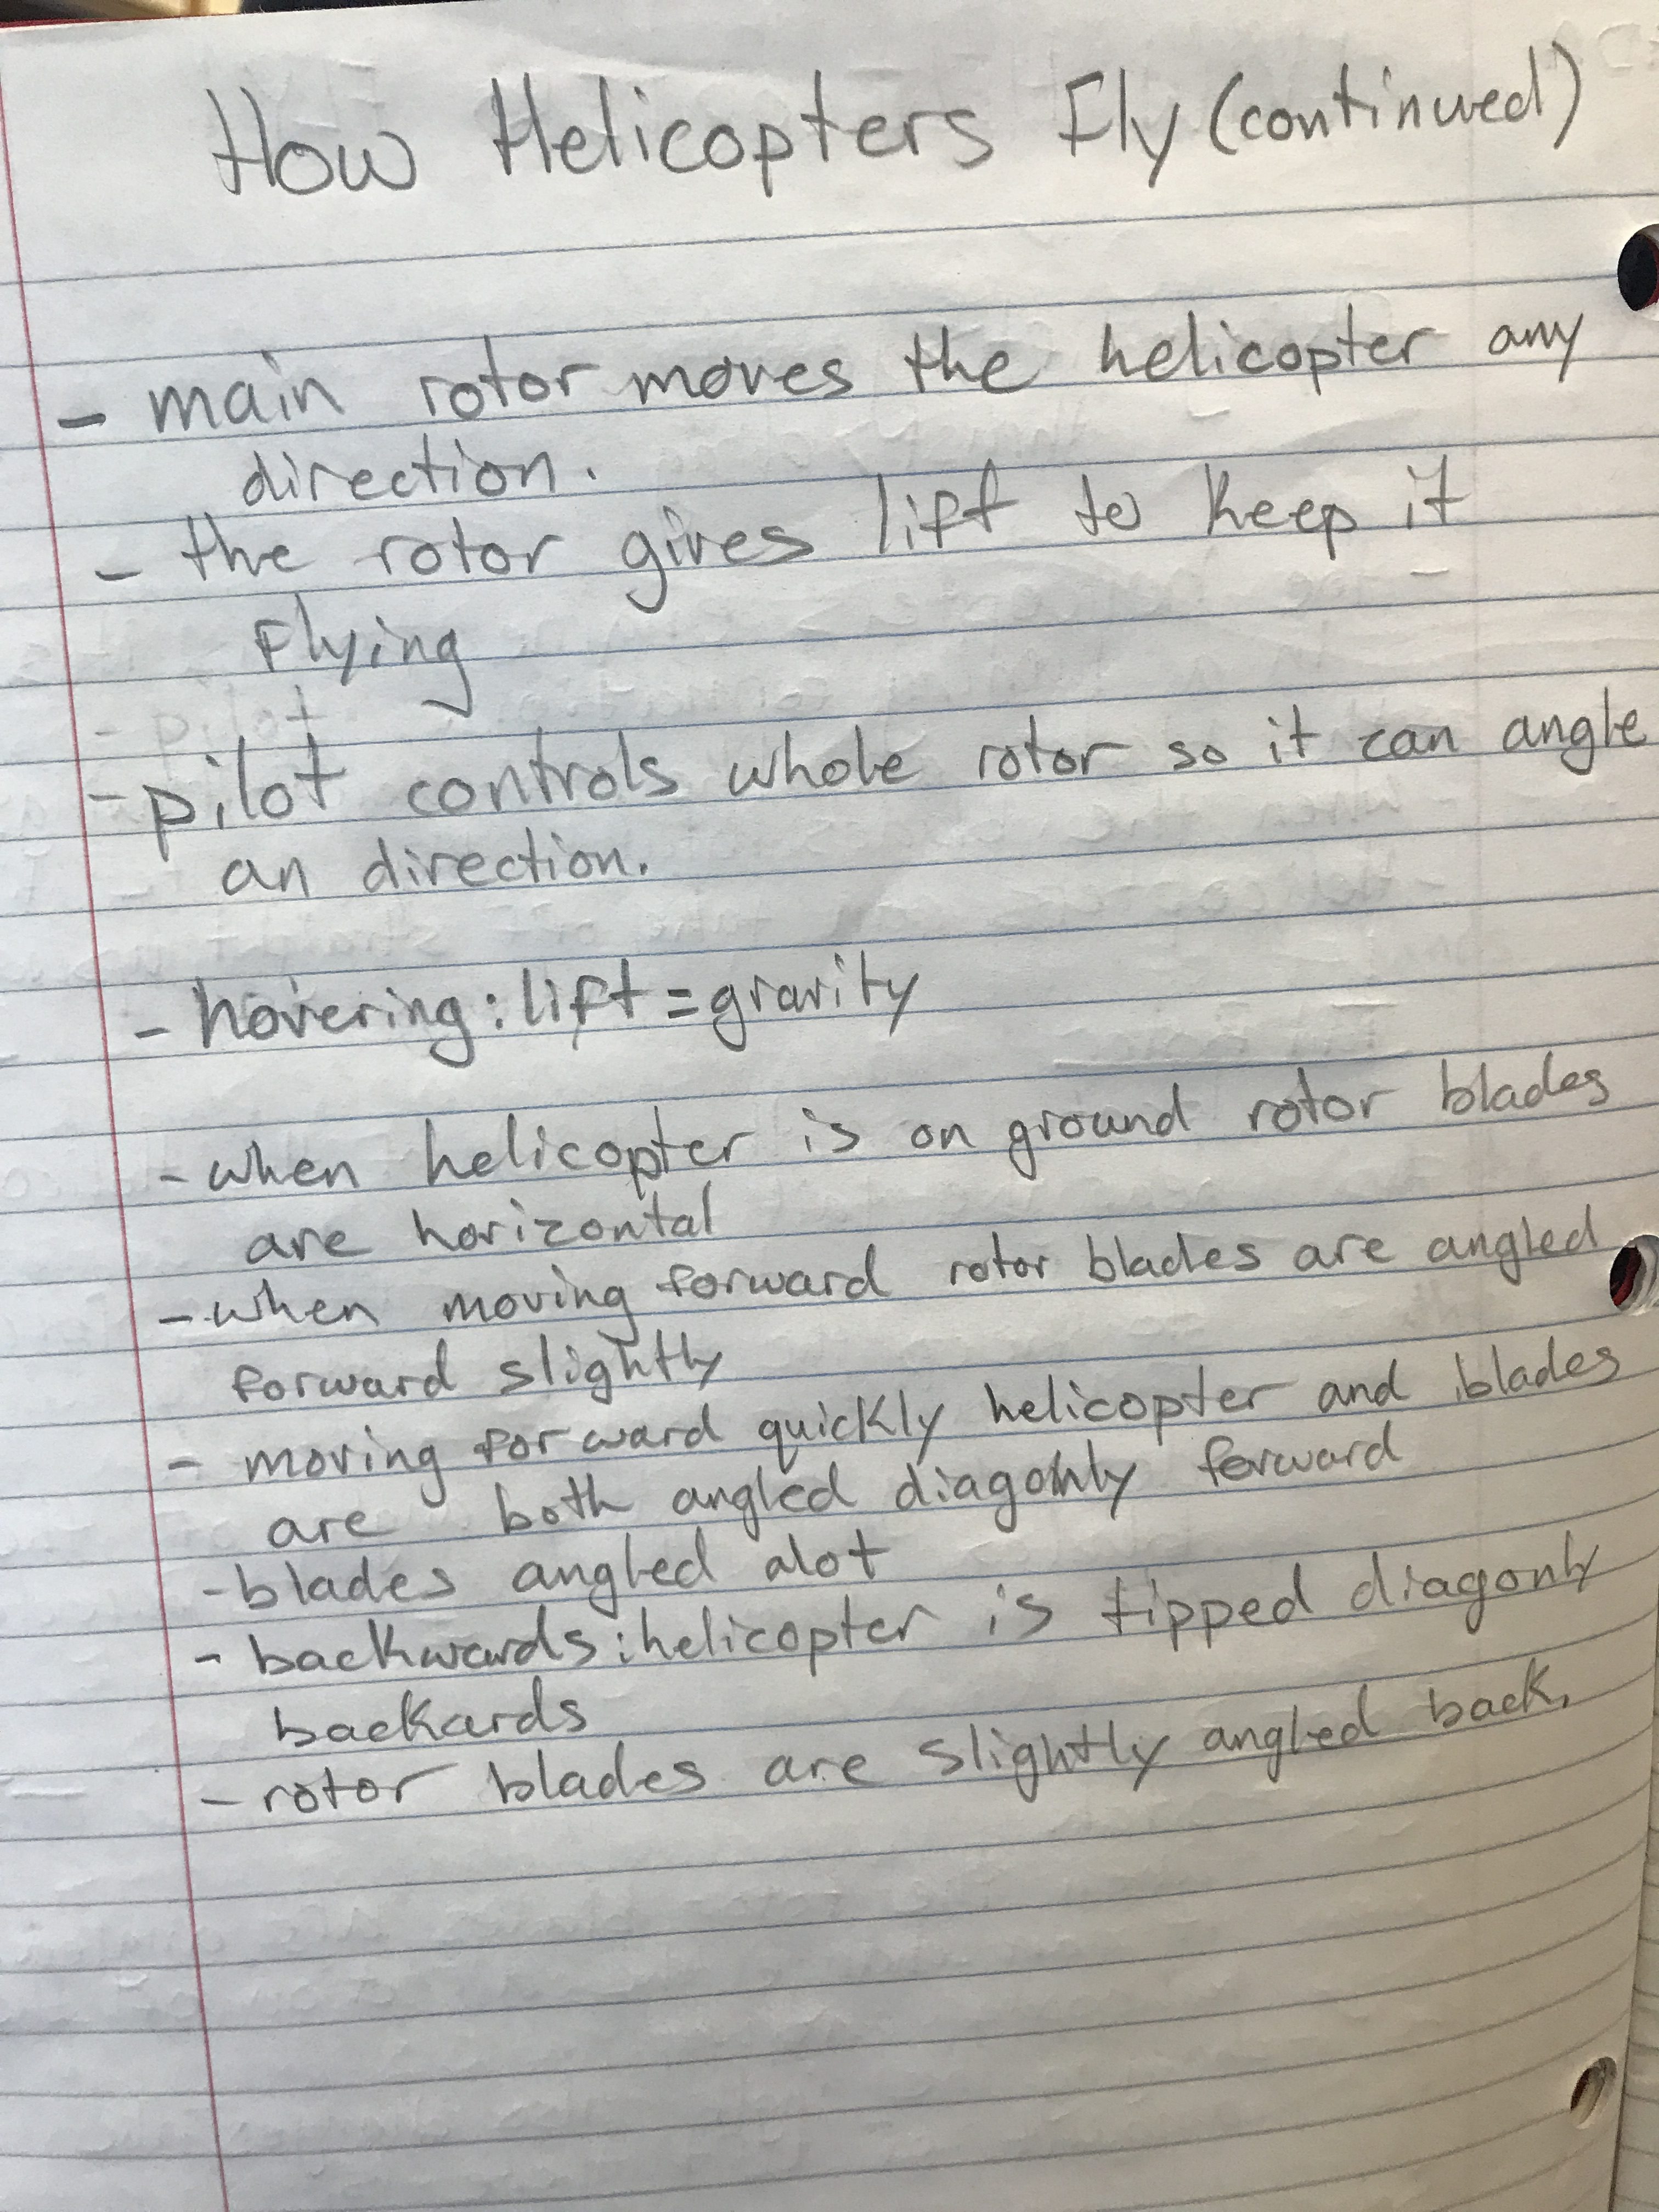 How Helicopters Fly (continued)
- main rotor moves the helicopter any
direction.
- the rotor gives lift to keep it
flying
- pilot controls whole rotor so it can angle
an direction.
- hovering: lift = gravity
- when helicopter is on ground rotor blades
are horizontal
- when moving forward rotor blades are angled
forward slightly
- moving forward quickly helicopter and blades
are both angled diagonly forward
- blades angled alot
- backwards: helicopter is tipped diagonly
backards
- rotor blades are slightly angled back.